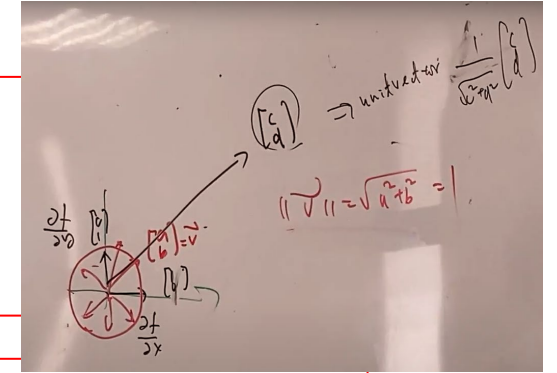 [c d] ⇒ unit vector 1/√(c²+d²) [c d]
‖v⃗‖ = √(a²+b²) = 1
∂f/∂y [0 1] [a b] = v⃗
[1 0]
∂f/∂x